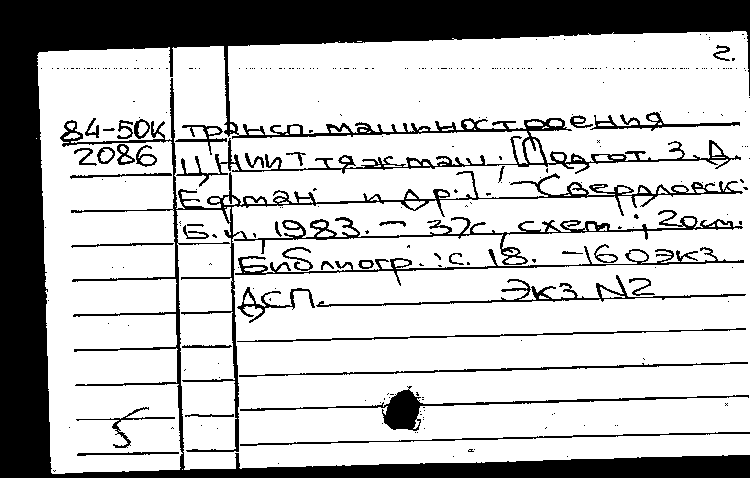 2.
84-50К трансп. машиностроения
2086 ЦНИИТтяжмаш; [Подгот. З. Д.
Ефрман и др.]. - Свердловск:
Б.и., 1983. - 37с., схем.; 20см.
Библиогр.: с. 18. - 160экз.
ДСП. Экз. N2
5